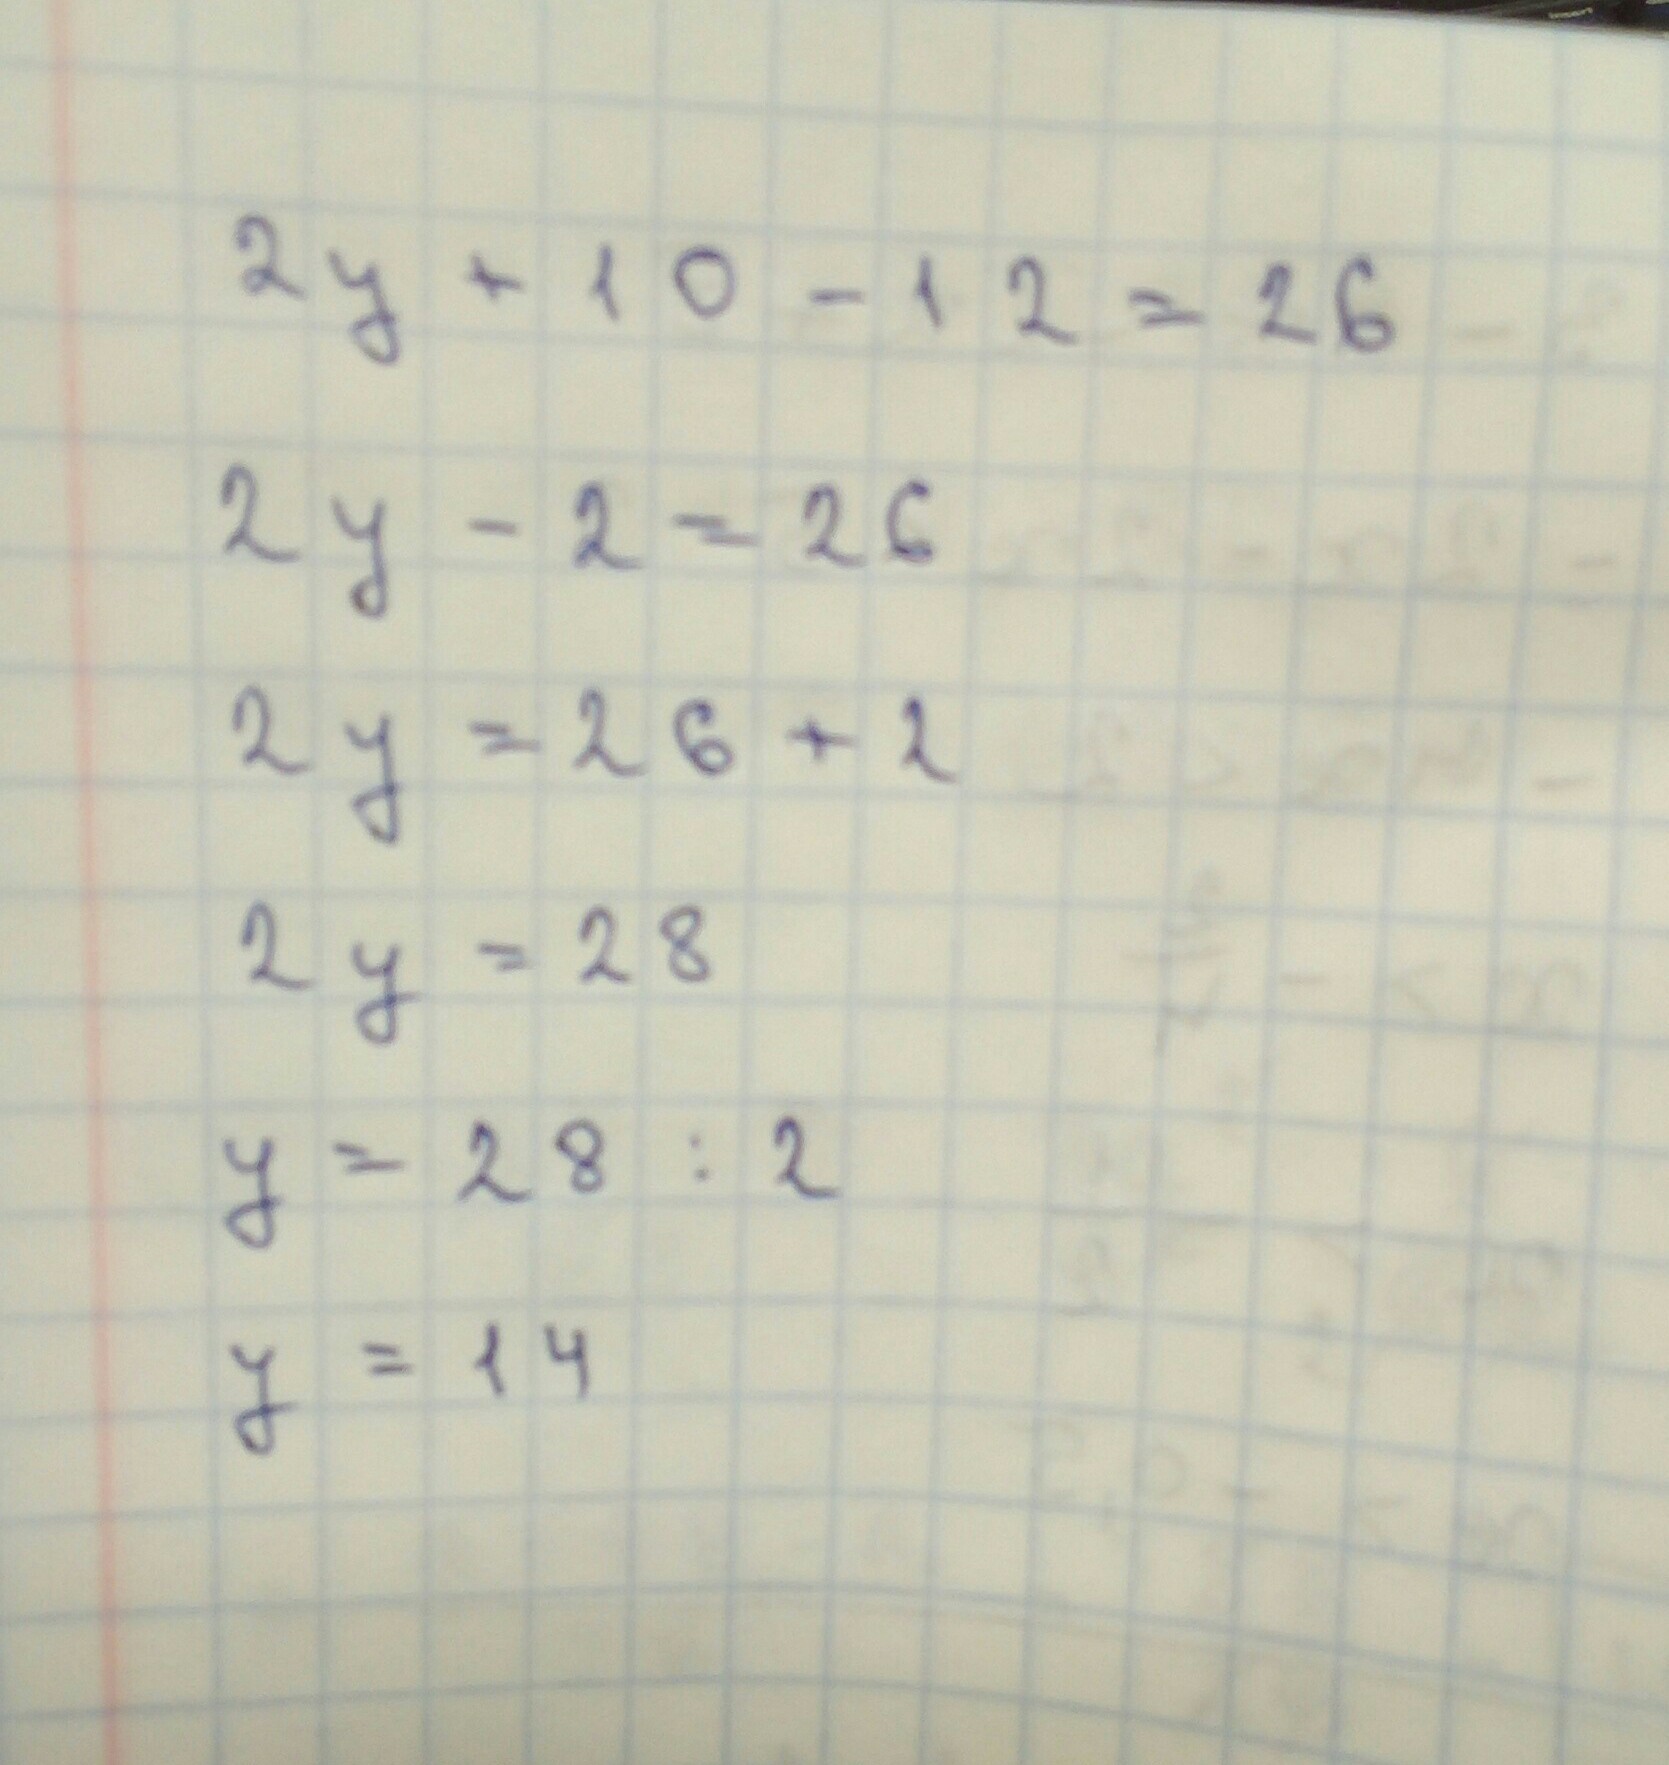 2y + 10 - 12 = 26
2y - 2 = 26
2y = 26 + 2
2y = 28
y = 28 : 2
y = 14